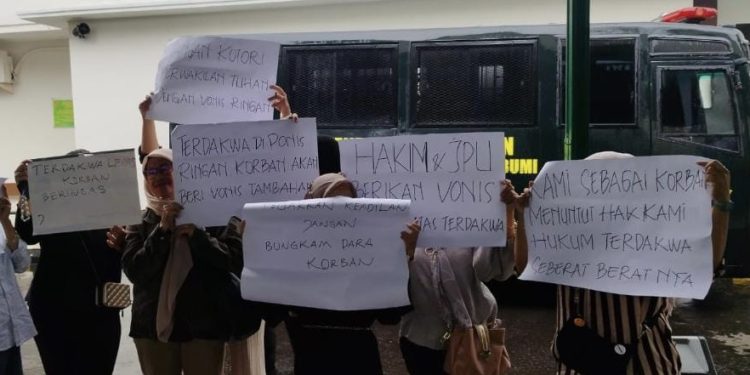 KOTORI
TUHAN
DENGAN VONIS RINGAN
TERDAKWA
KORBAN
BERINGAS
?
TERDAKWA DI PONIS
RINGAN KORBAN AKAN
BERI VONIS TAMBAHAN
HAKIM & JPU
BERIKAN VONIS
TERDAKWA
JANGAN
BUNGKAM DARA
KORBAN
KAMI SEBAGAI KORBAN
MENUNTUT HAK KAMI
HUKUM TERDAKWA
SEBERAT BERAT NYA